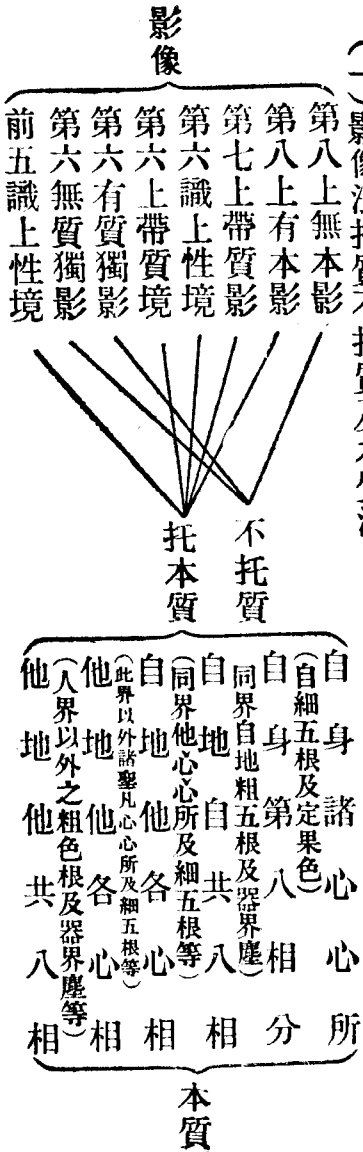 (一)影像法托質不托質
影像
第八上無本影
第八上有本影
第七上帶質影
第六識上性境
第六上帶質境
第六有質獨影
第六無質獨影
前五識上性境
不托質
托本質
自身諸心心所
(自細五根及定果色)
自身第八相分
同界自地粗五根及器界塵)
自地自共八相
(同界他心心所及細五根等)
自地他各心相
(此界以外諸聖凡心心所及細五根等)
他地他各心相
(人界以外之粗色根及器界塵等)
他地他共八相
本質